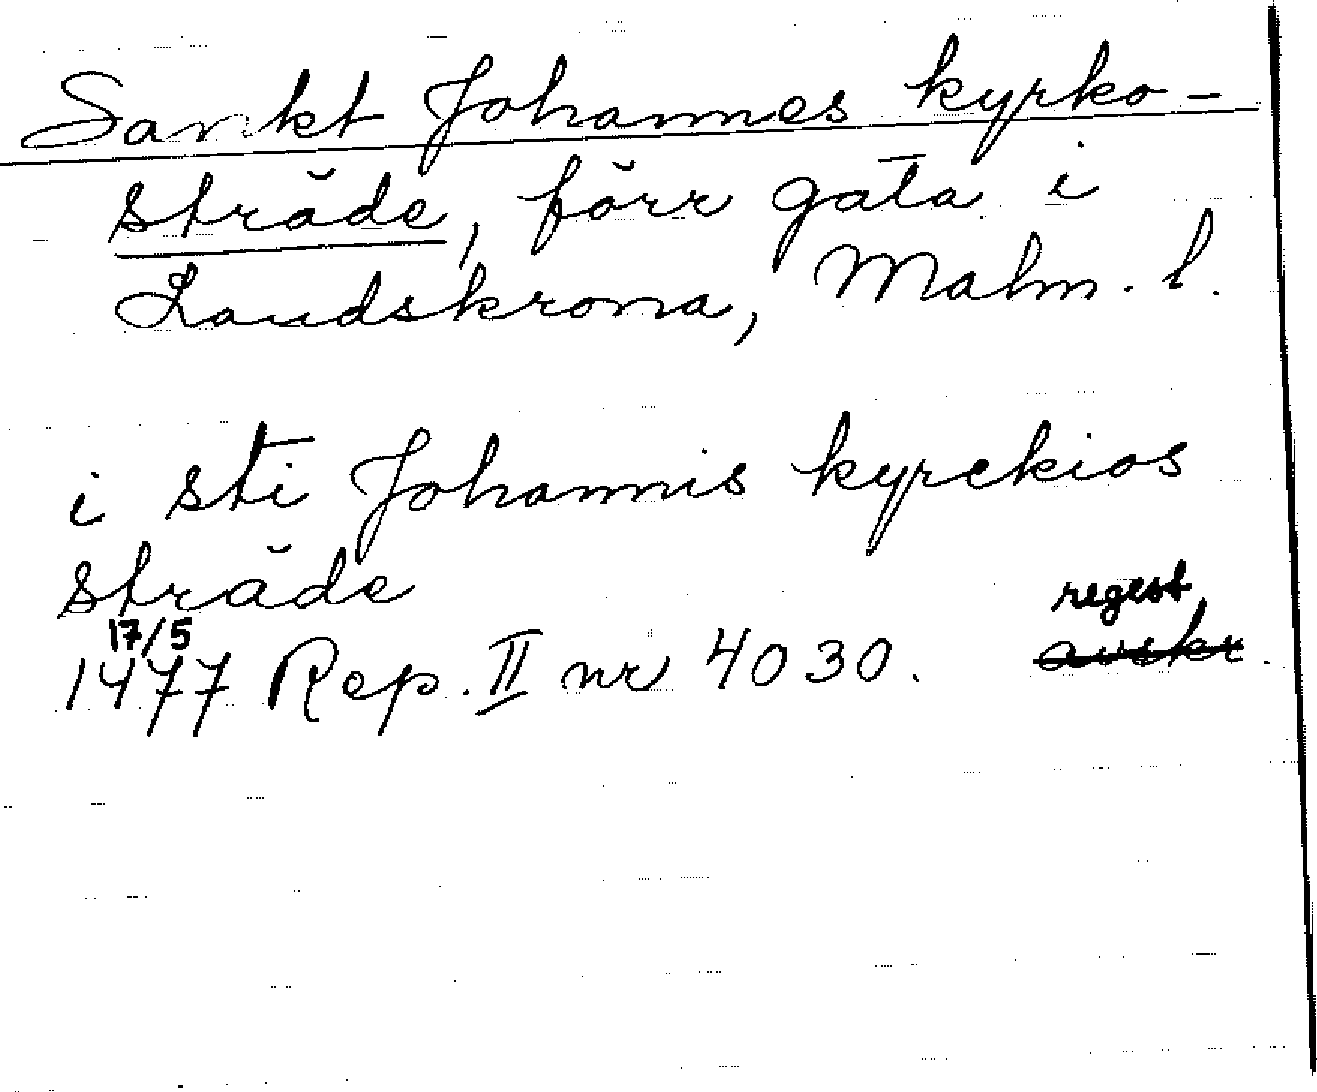 Sankt Johannes kyrko-
sträde, förr gata i
Landskrona, Malm. l.
i sti Johannis kyrckios
stræde
17/5 regest
1477 Rep. II nr 4030. avskr.